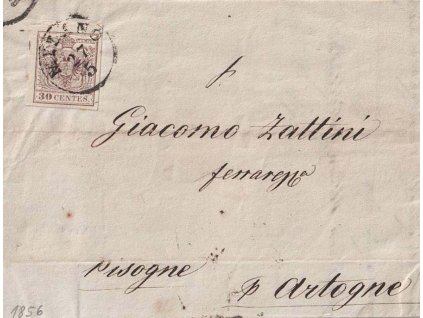 MILANO
27
5
30 CENTES.
p
Giacomo Zattini
pisogne p Artogne
1856